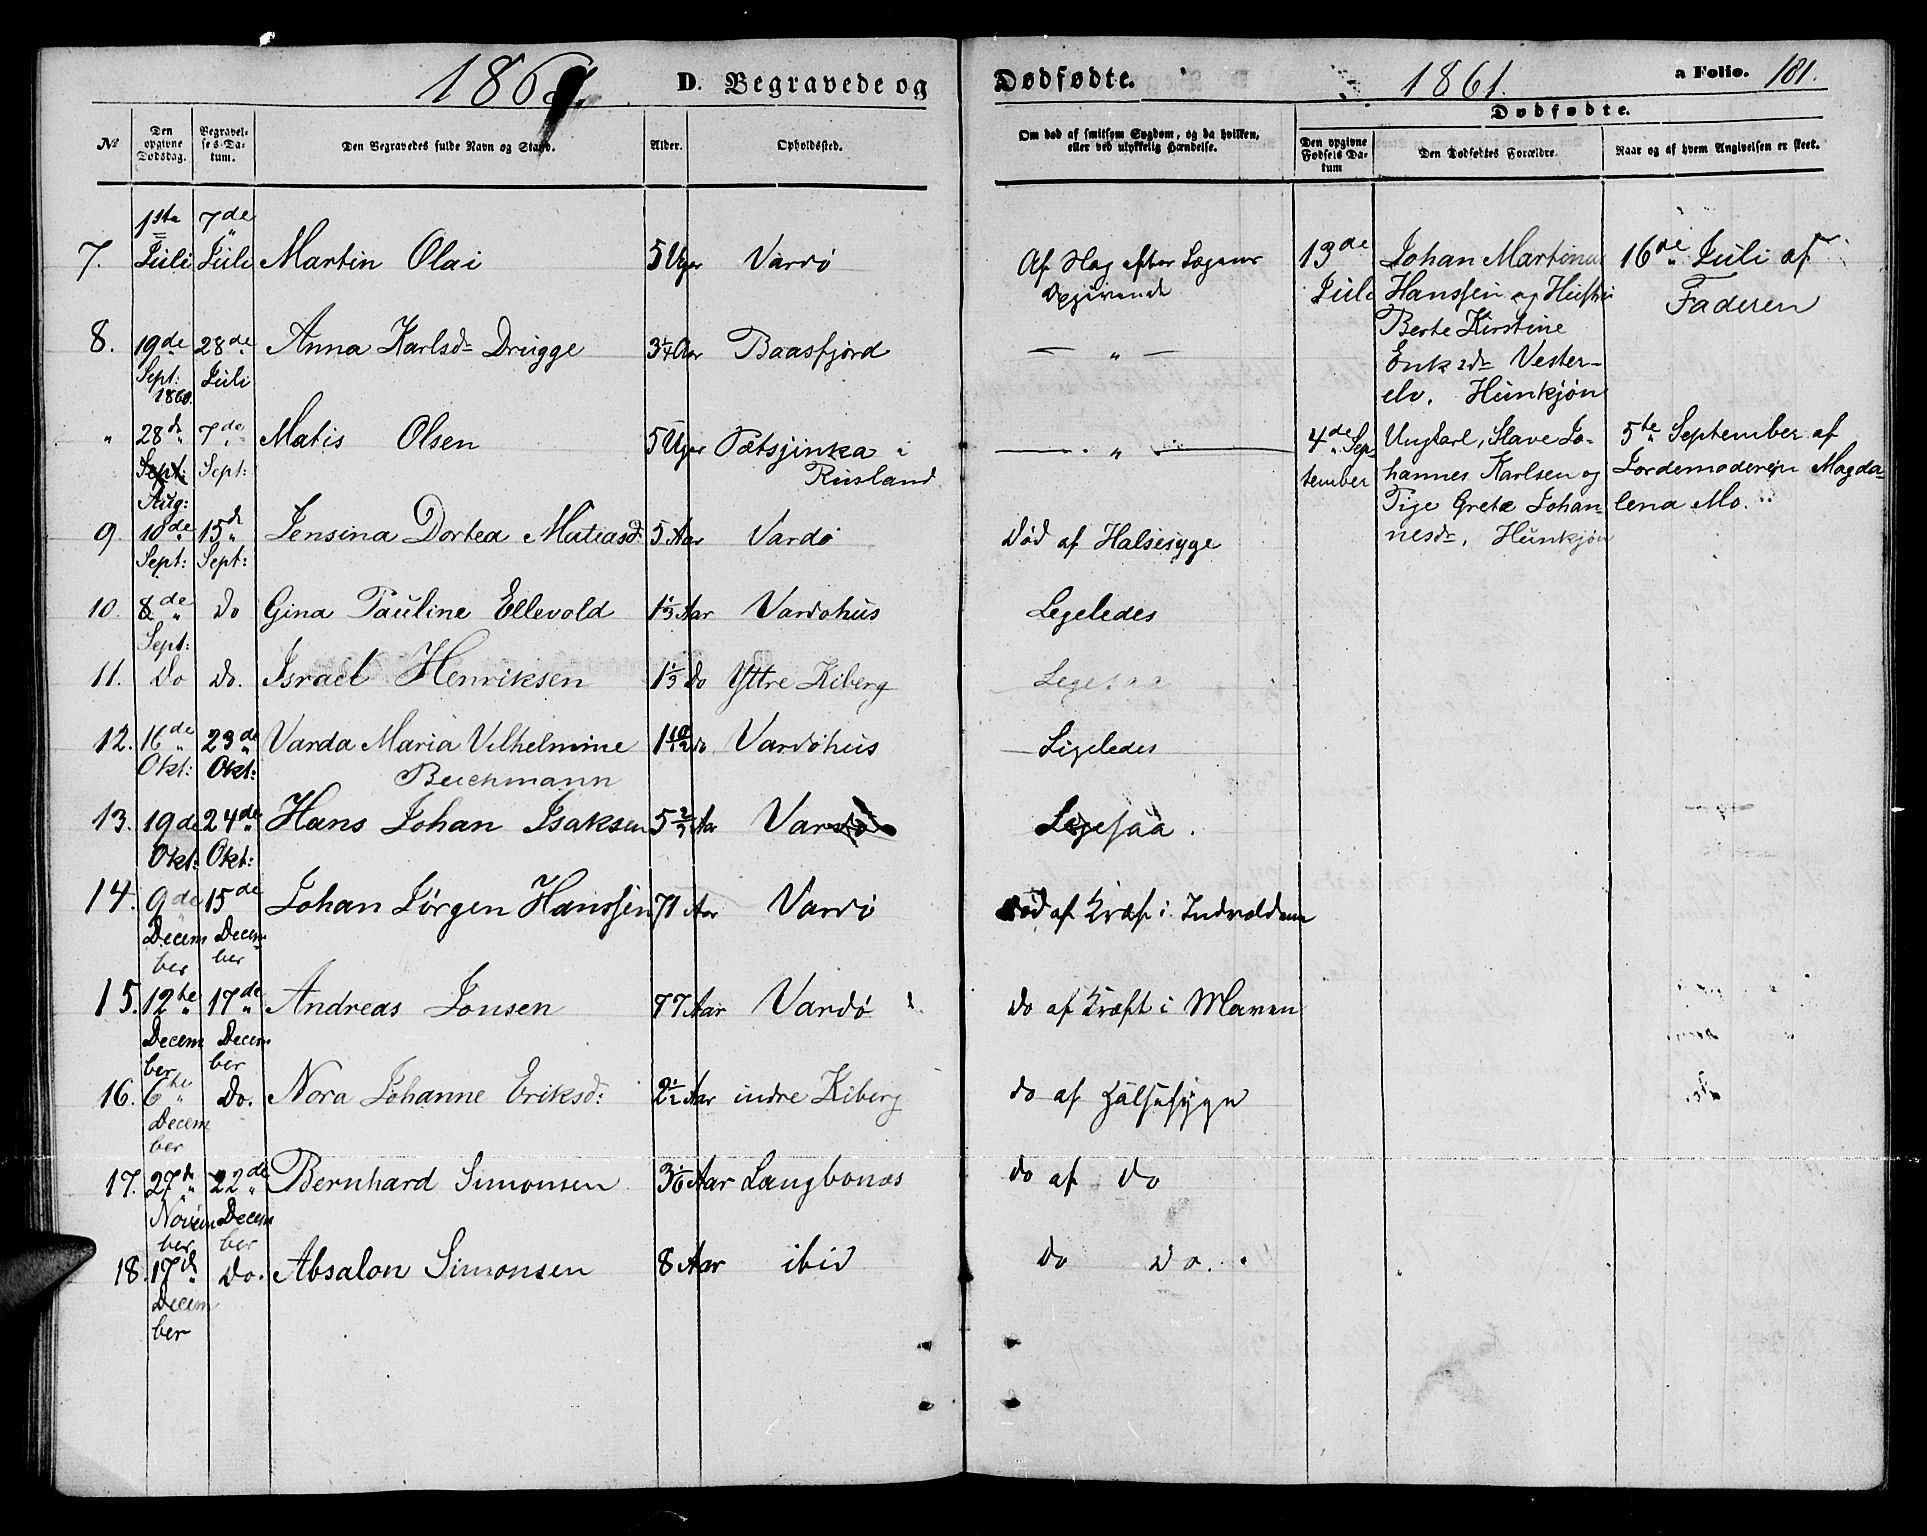 1861. D. Begravede og
Dødfødte. 1861. a Folio. 181.
Dødfødte.
No
Den opgivne Dødsdag.
Begravelses-Datum.
Den Begravedes fulde Navn og Stand.
Alder.
Opholdssted.
Om død af smitsom Sygdom, og da hvilken, eller ved ulykkelig Hændelse.
Den opgivne Fødsels Datum
Den Dødfødtes Forældre.
Naar og af hvem Angivelsen er skeet.
7. 1ste Juli 7de Juli Martin Olai 5 Uger Vardø Af Hag efter Lægens Opgivende
8. 19de Sept: 1860. 28de Juli Anna Karlsd. Drugge 3¼ Aar Baasfjord — " —
" 28de Sept: Aug: 7de Sept: Matis Olsen 5 Uger Petsjinka i Rusland — " —
9. 10de Sept: 15de Sept: Jensina Dortea Matiasd. 5 Aar Vardø Død af Halsesyge
10. 8de Sept: Do Gina Pauline Ellevold 1⅓ Aar Vardøhus Legeledes
11. Do Do. Israel Henriksen 1⅓ Do Yttre Kiberg Legesaa
12. 16de Okt: 23de Okt: Varda Maria Vilhelmine Beichmann 1 10/12 do Vardøhus Ligeledes
13. 19de Okt: 24de Okt: Hans Johan Isaksen 5 Aar Vardø Legesaa.
14. 9de December 15de December Johan Jørgen Hanssen 71 Aar Vardø Død af Kræft i Indvoldene
15. 12te December 17de December Andreas Jonsen 77 Aar Vardø do af Kræft i Maven
16. 6te December Do. Nora Johanne Eriksd: 2½ Aar indre Kiberg do af Halsesyge
17. 27de November 22de December Bernhard Simonsen 3 Aar Langbunæs do af do
18. 17de December Do. Absalon Simonsen 8 Aar ibid do do.
13de Juli
Johan Martinus
Hanssen og Hustru
Berte Kirstine
Vester-
elv. Hunkjøn
16de Juli af
Faderen
4de September
Ungkarl, Slave Jo-
hannes Karlsen og
Pige Grete Johan-
nesd., Hunkjøn
5te September af
Jordemoderen Magda-
lena Mo.